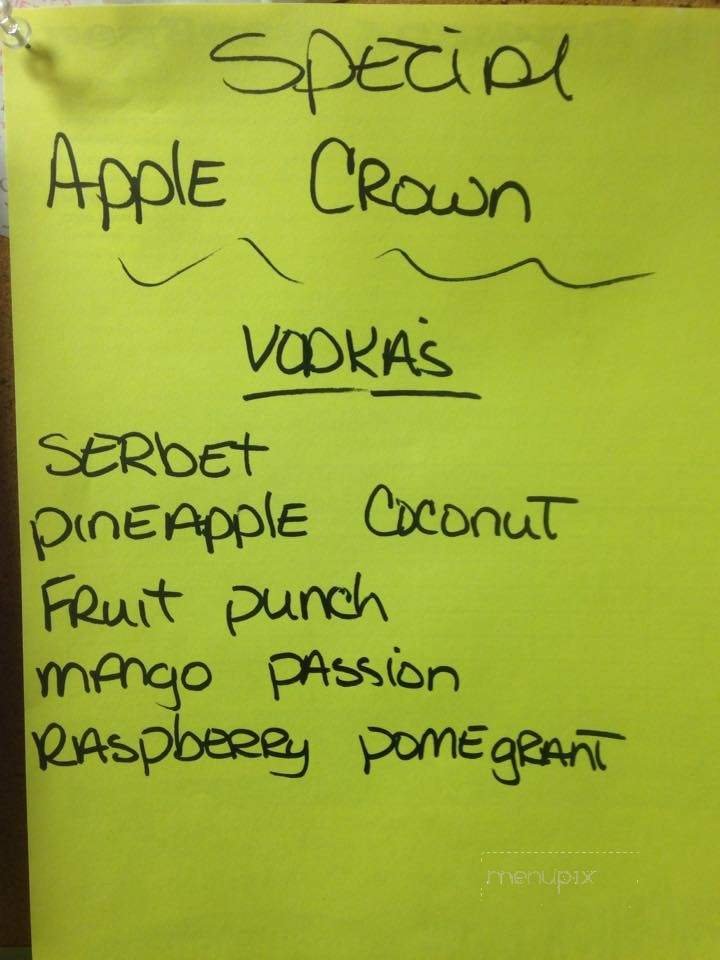 Special
Apple Crown
VODKA's
SERbET
PINEApplE Coconut
Fruit punch
mango passion
Raspberry pomegrant
menupix